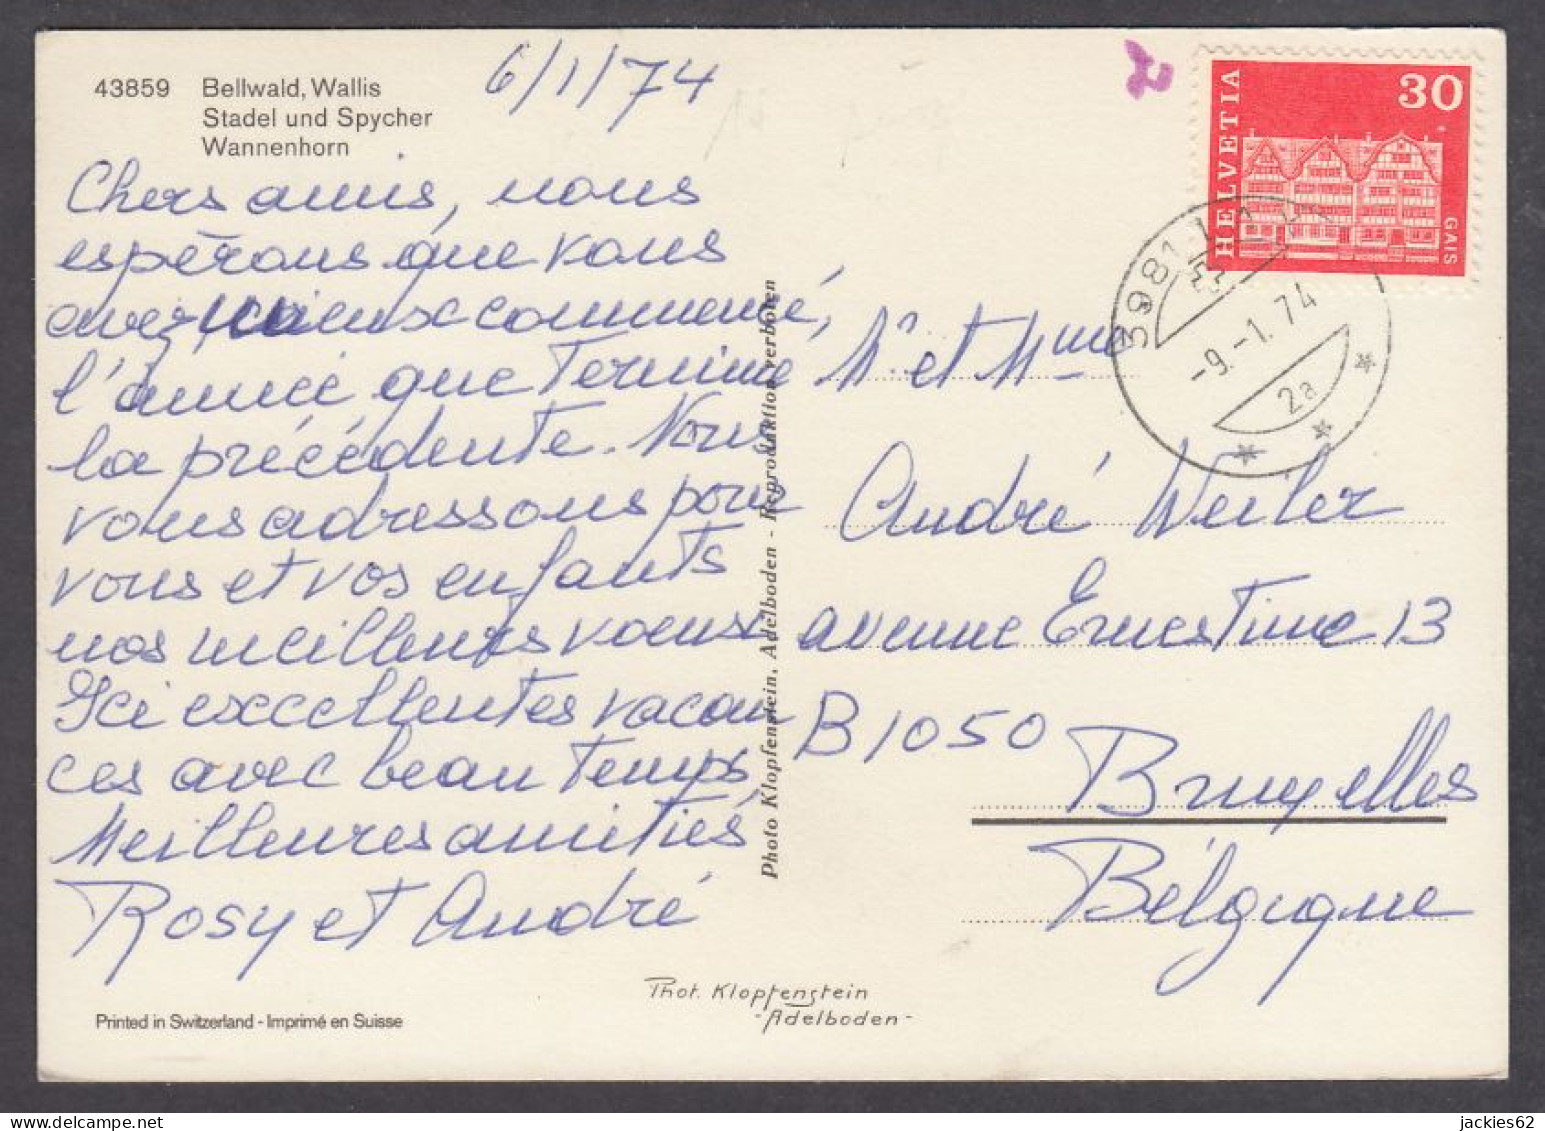 43859 Bellwald, Wallis
Stadel und Spycher
Wannenhorn
6/1/74
Chers amis, nous
espérons que vous
avez mieux commencé,
l'année que terminé
la précédente. Nous
vous adressons pour
vous et vos enfants
nos meilleurs voeux.
Ici excellentes vacan
ces avec beau temps,
Meilleures amitiés
Rosy et André
Printed in Switzerland - Imprimé en Suisse
Photo Klopfenstein, Adelboden - Reproduktion verboten
Phot. Klopfenstein
- Adelboden -
2
HELVETIA
30
GAIS
3981
-9.-1.74
2a
Mr et Mme
André Weiler
avenue Ernestine 13
B 1050
Bruxelles
Bélgique
jackies62